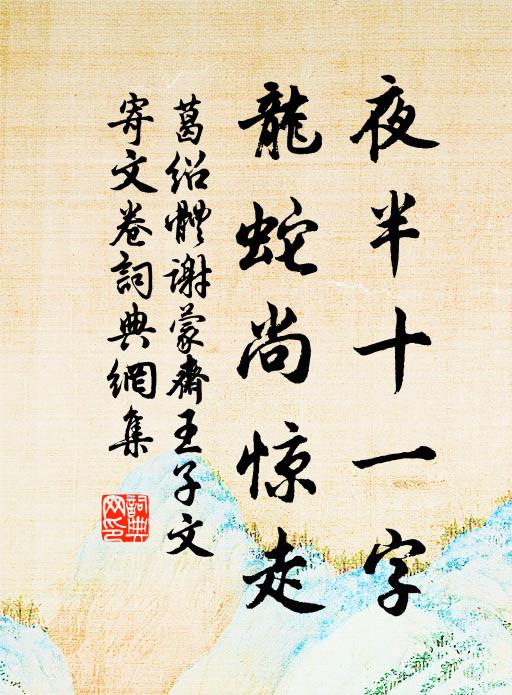 夜半十一字
龍蛇尚惊走
葛绍體谢蒙齋王子文
寄文卷詞典網集
詞典网印